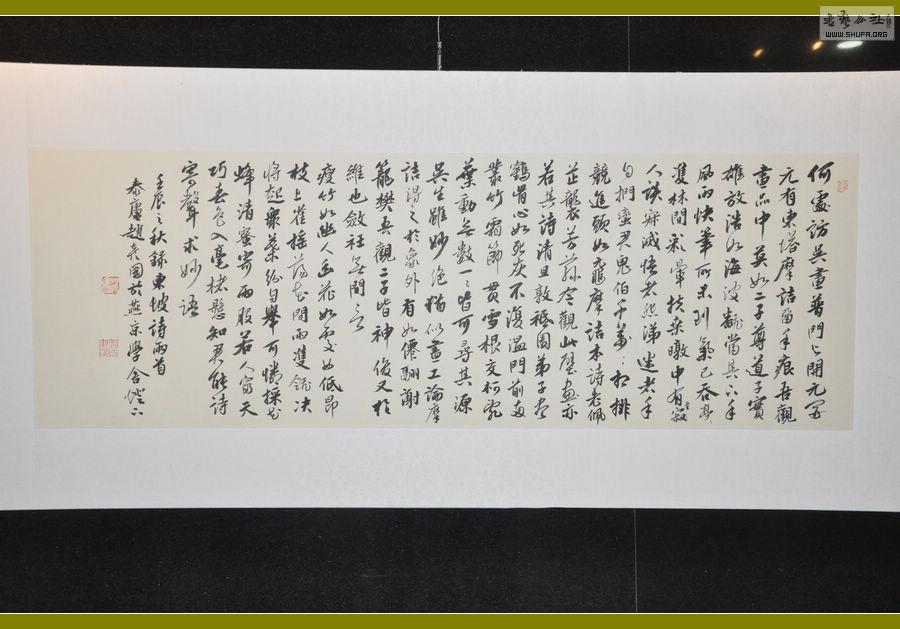 何處訪吳畫普門與開元開
元有東塔摩詰留手痕吾觀
畫品中莫如二子尊道子實
雄放浩如海波翻當其下手
風雨快筆所未到氣已吞亭亭
雙林間彩暈扶桑暾中有至
人談寂滅悟者悲涕迷者手
自捫蠻君鬼伯千萬萬相排
競進頭如黿摩詰本詩老佩
芷襲芳蓀今觀此壁畫亦
若其詩清且敦祗園弟子盡
鶴骨心如死灰不復溫門前兩
叢竹霜節貫雪根交柯亂
葉動無數一一皆可尋其源
吳生雖妙絕猶以畫工論摩
詰得之於象外有如僊翮謝
籠樊吾觀二子皆神俊又於
維也斂衽無間言
瘦竹如幽人幽花如處女低昂
枝上雀搖蕩花間雨雙翎決
將起衆葉紛自舉可憐採花
蜂清蜜寄兩股若人富天
巧春色入毫楮懸知君能詩
寄聲求妙語
壬辰之秋錄東坡詩兩首
泰廬趙國於燕京學舍燈下
書藝公社
WWW.SHUFA.ORG